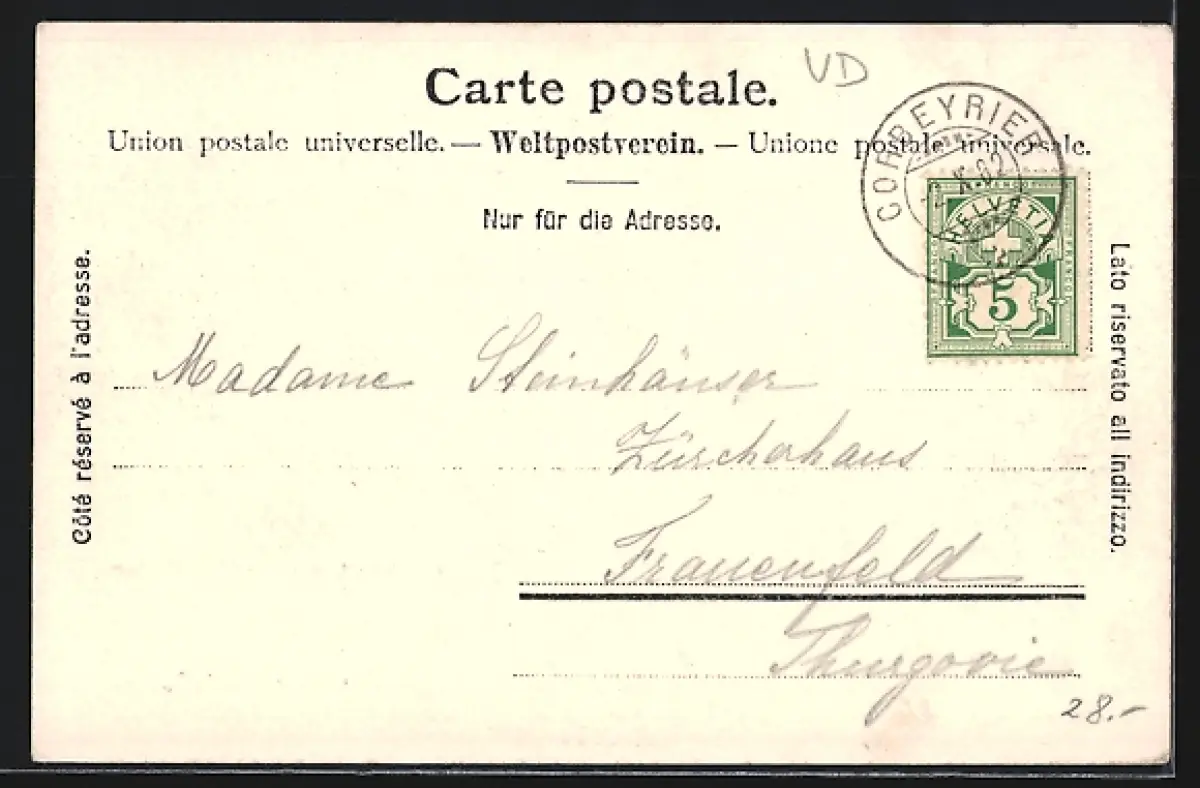 VD
Carte postale.
Union postale universelle. — Weltpostverein. — Unione postale universale.
Nur für die Adresse.
CORBEYRIER
X.02
HELVETIA
FRANCO
5
Côté réservé à l'adresse.
Lato riservato all indirizzo.
Madame Steinhäuser
Zürcherhaus
Frauenfeld
Thurgovie
28.-